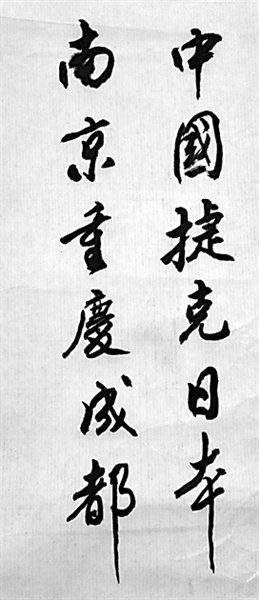 中國捷克日本
南京重慶成都